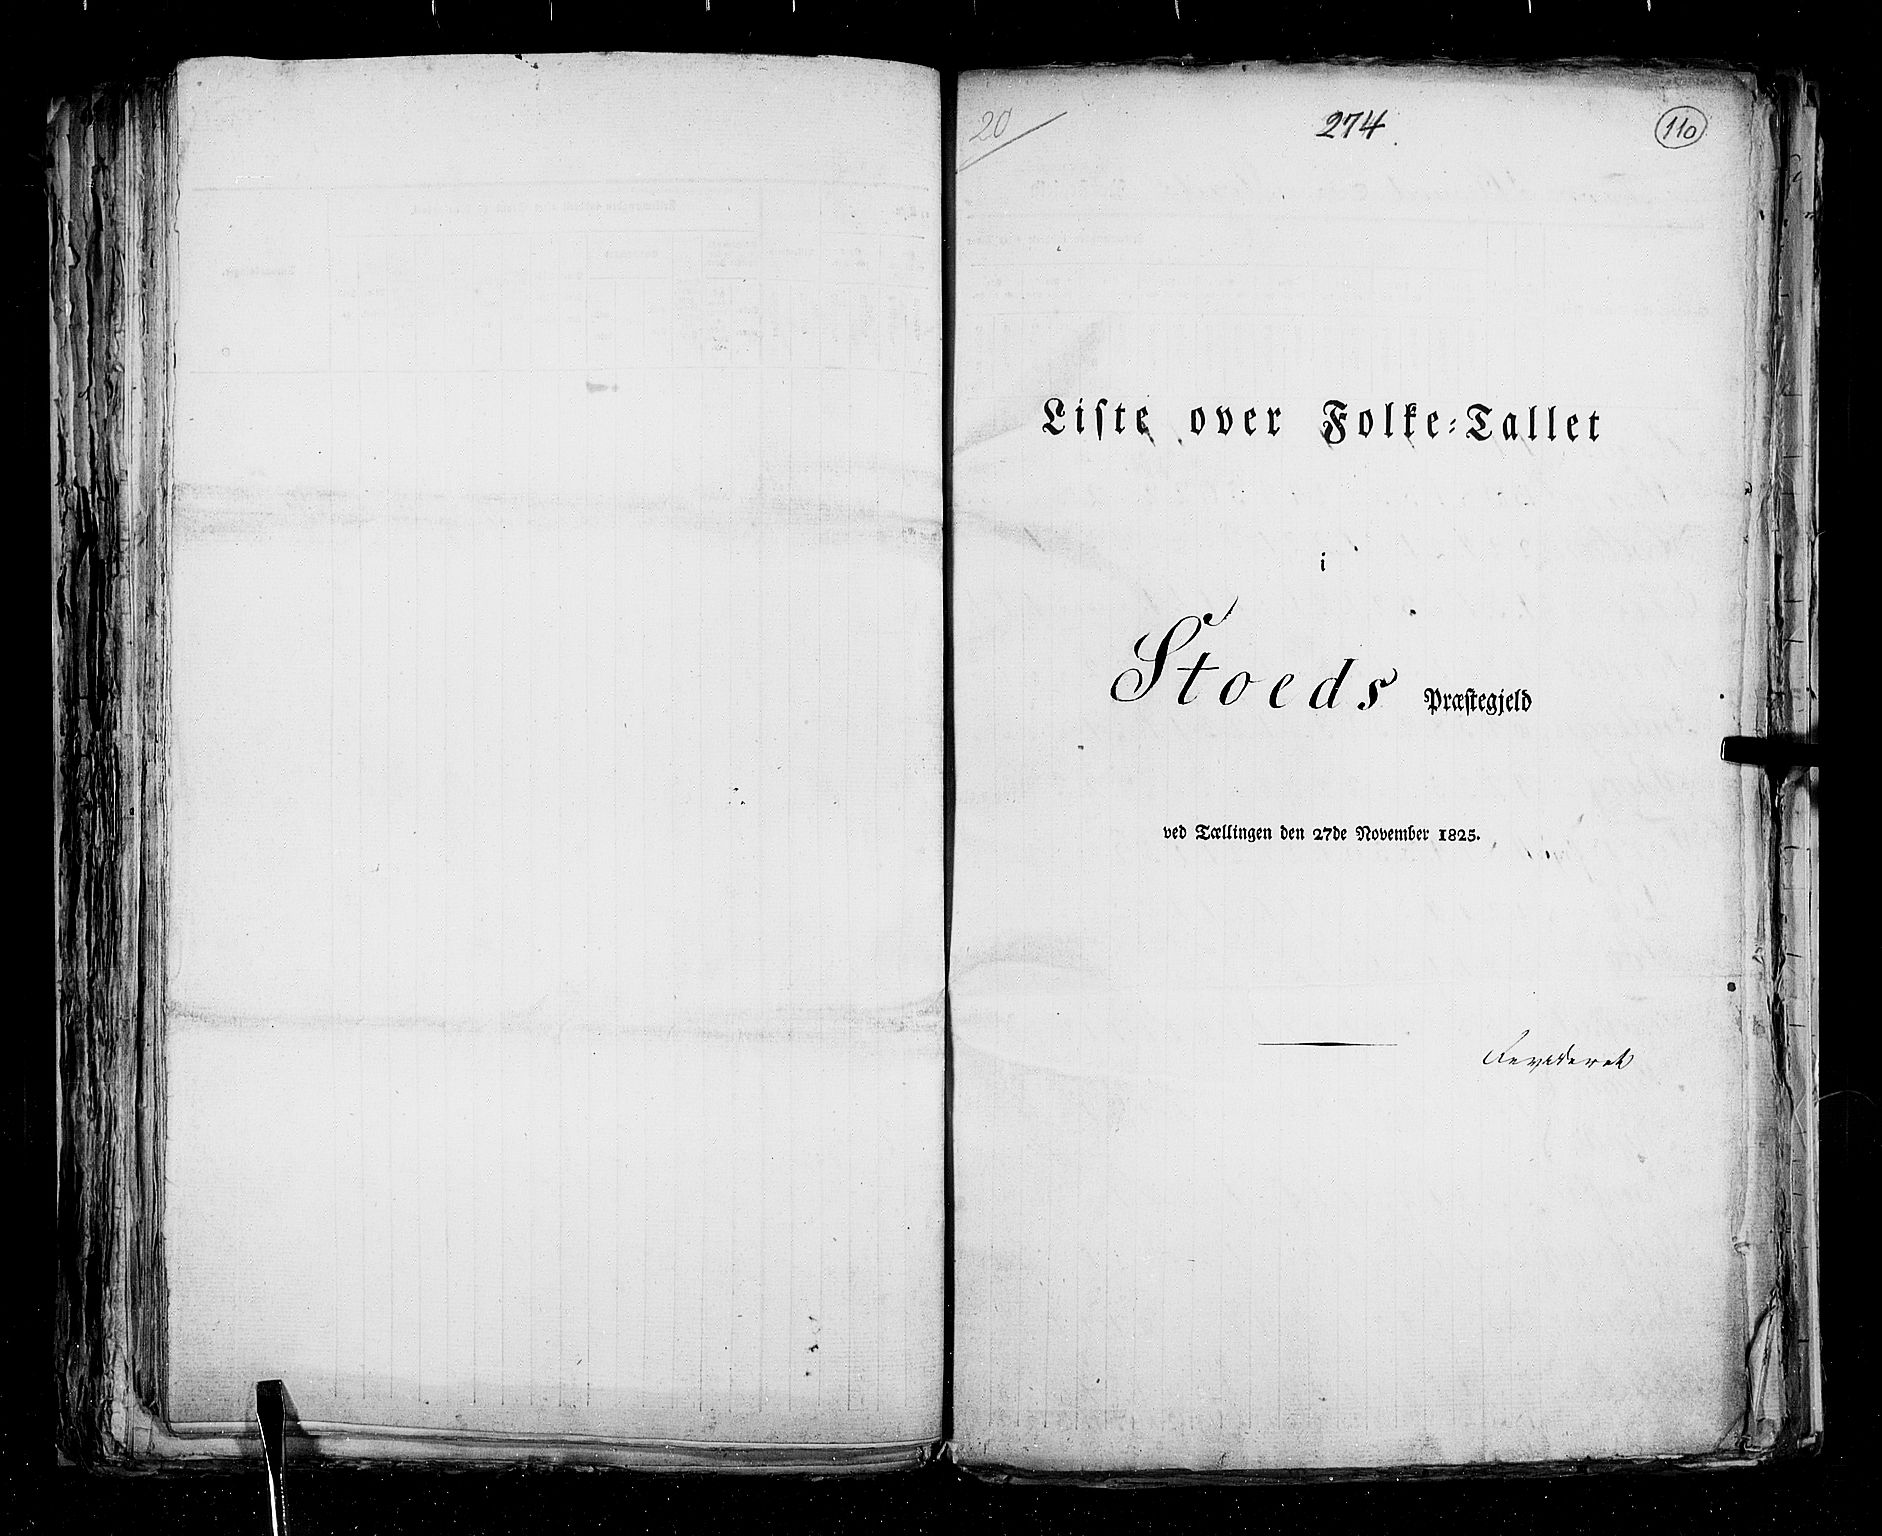 20
274.
110
Liste over Folke-Tallet
i
Stoeds Præstegjeld
ved Tællingen den 27de November 1825.
Revideret